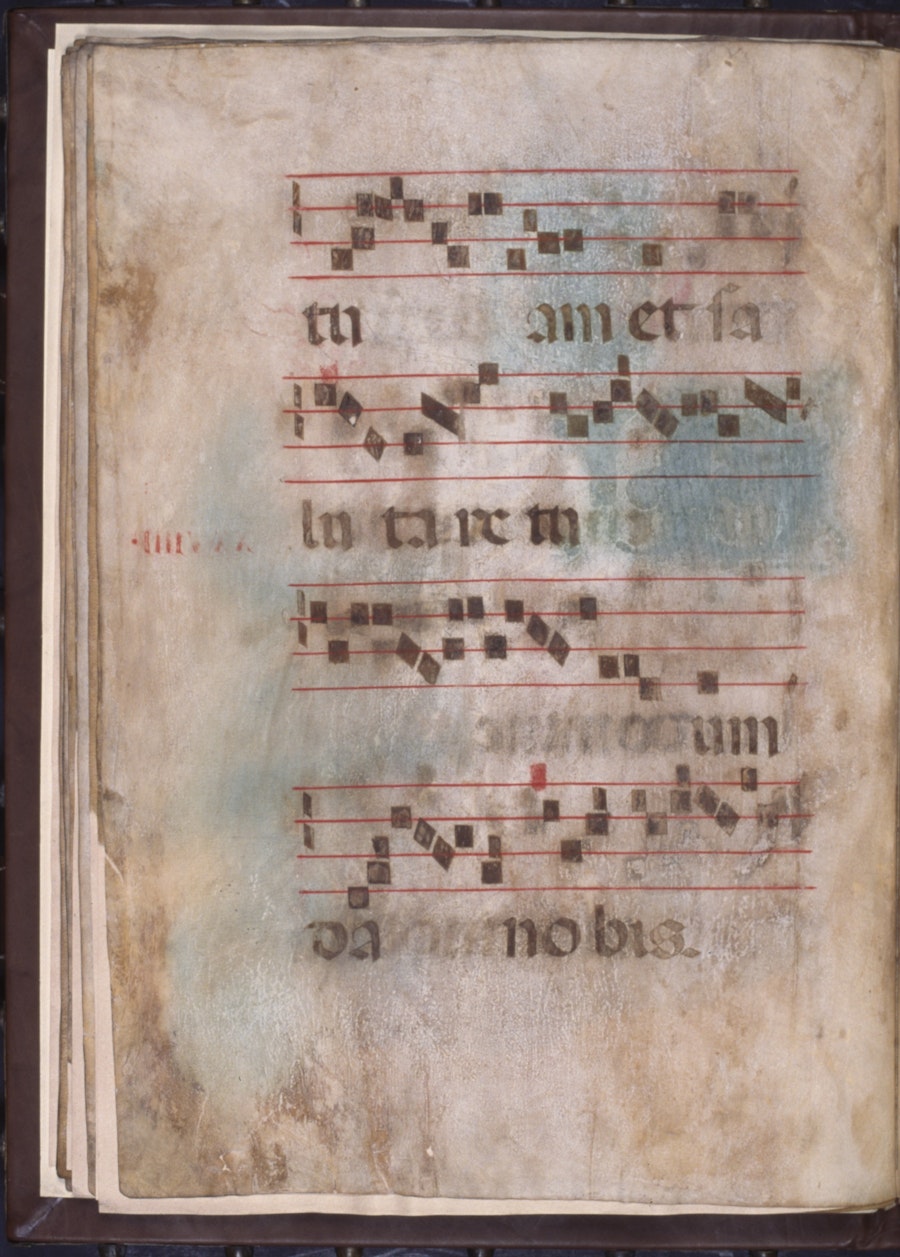 tu am et sa
lu ta re tu
um
da no bis.